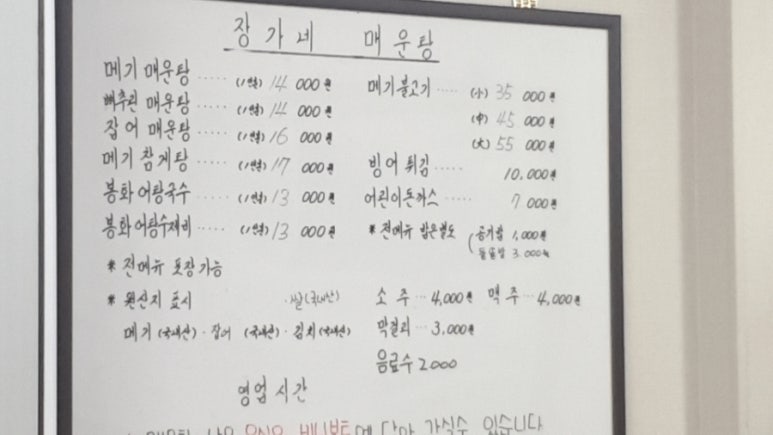 장가네 매운탕
메기 매운탕 ..... (1인분) 14 000원
빠추린 매운탕 ..... (1인분) 14 000원
잡어 매운탕 ..... (1인분) 16 000원
메기 참게탕 ..... (1인분) 17 000원
봉화 어탕국수 ..... (1인분) 13 000원
봉화 어탕수제비 ..... (1인분) 13 000원
* 전메뉴 포장가능
* 원산지 표시 · 쌀(국내산)
메기 (국내산) · 잡어 (국내산) · 김치 (국내산)
메기불고기 ..... (小) 35 000원
(中) 45 000원
(大) 55 000원
빙어 튀김 ..... 10.000원
어린이돈까스 ..... 7 000원
* 전메뉴 밥은별도 (공기밥 1,000원
돌솥밥 3.000원
소주 ... 4,000원 맥주 ... 4,000원
막걸리 ... 3,000원
음료수 2000
영업시간